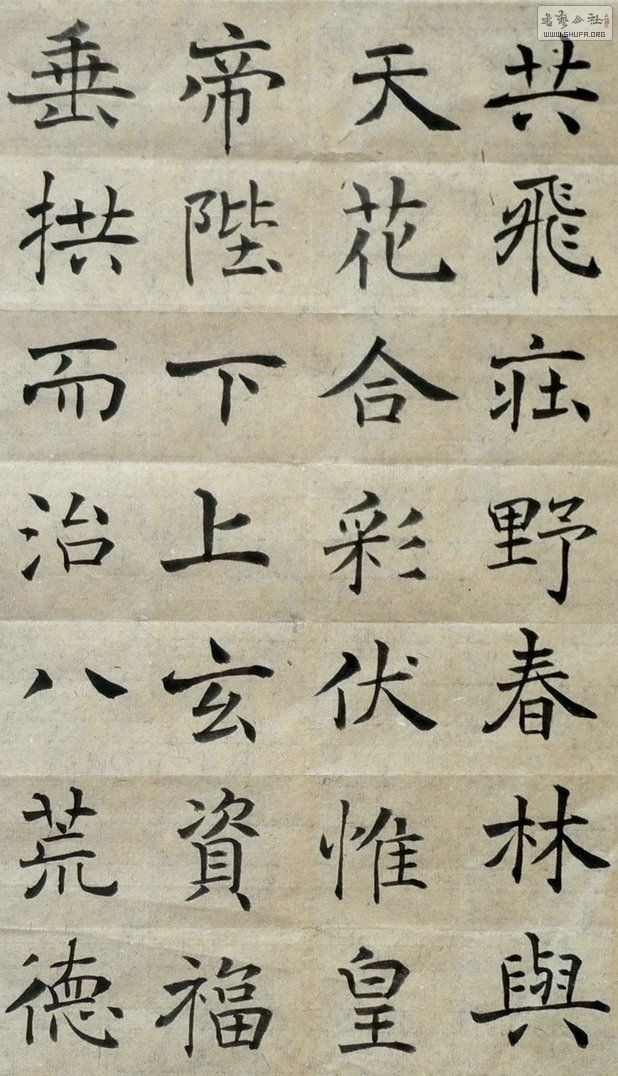 共飛莊野春林與
天花合彩伏惟皇
帝陛下上玄資福
垂拱而治八荒德
WWW.SHUFA.ORG